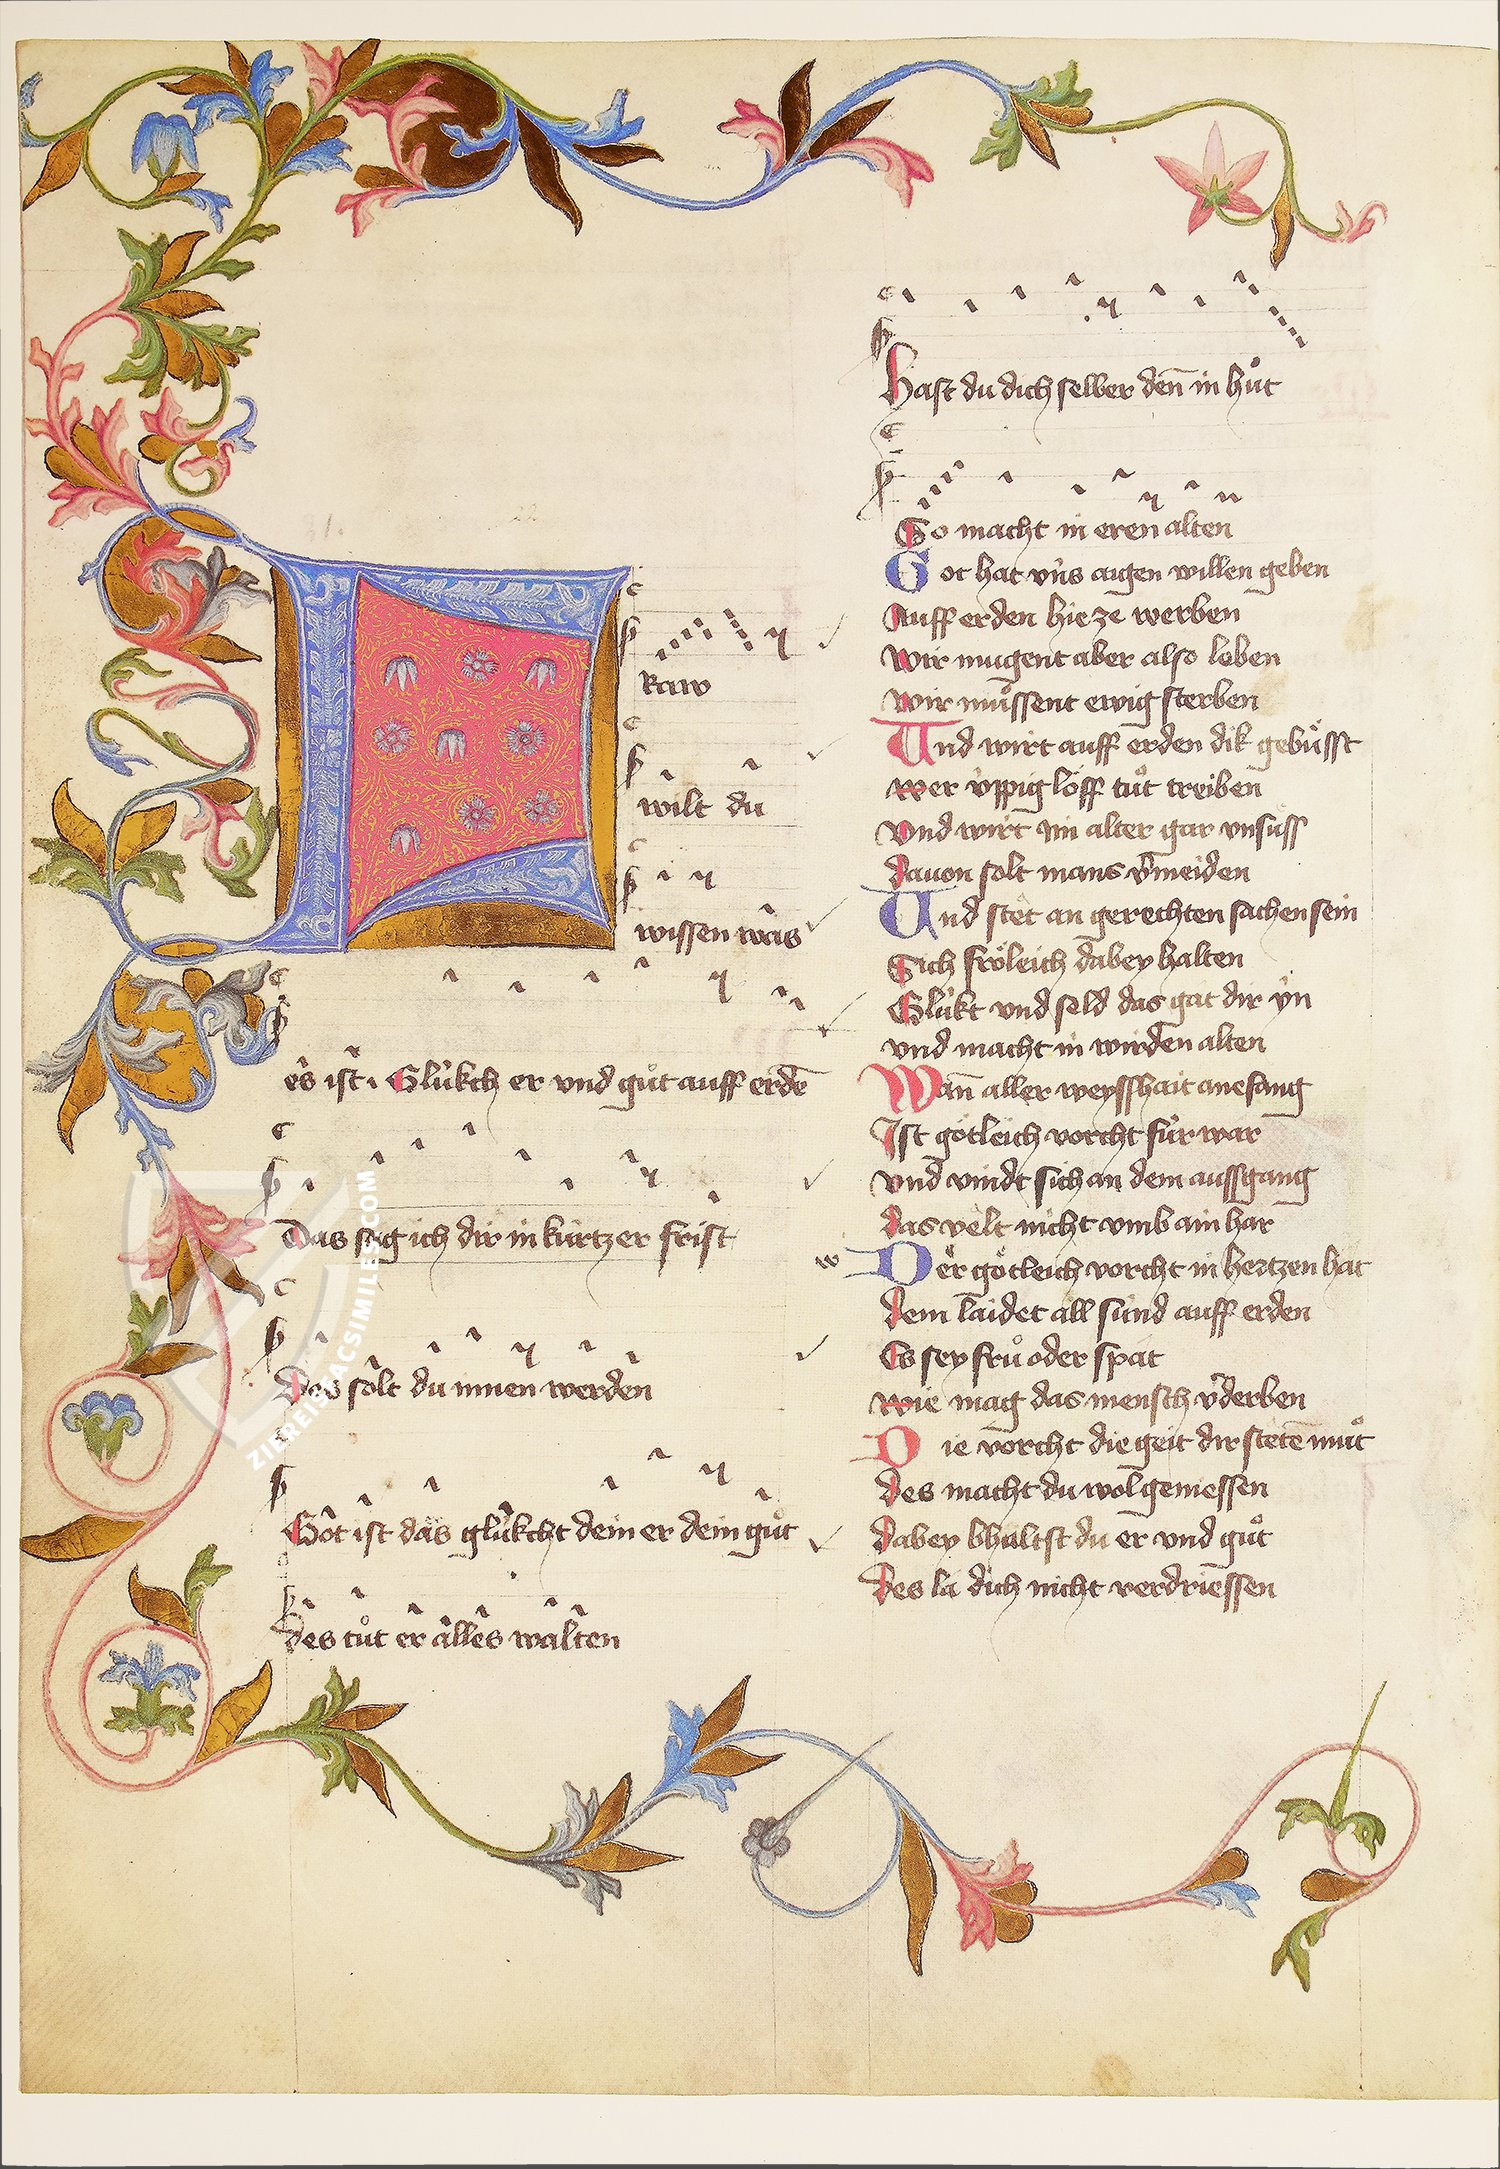 Fraw
wilt du
wissen was
es ist. Glükch er vnd gůt auff erdē
Das sag ich dir in kurtzer frist
des solt du innen werden
Got ist das glükcht dein er dein gůt
Des tůt er alles walten
hast du dich selber deñ in hůt
So macht in eren alten
Got hat vns aigen willen geben
Auff erden hie ze werben
wir mugent aber also leben
wir můssent ewig sterben
Und wirt auff erden dik gebůsst
wer vppig löff tůt treiben
Vnd wirt im alter gar vnsuss
dauon solt mans v̄meiden
Und stet an gerechten sachen sein
Sich fröleich dabey halten
Glükt vnd seld das gat dir yn
vnd macht in wirden alten
Wañ aller weysshait anefang
Ist götleich vorcht für war
vnd vindt sich an dem aussgang
das velt nicht vmb ain har
w
Der götleich vorcht in hertzen hat
dem laidet all sünd auff erden
Es sey frů oder spat
wie mag das mensch v̄derben
Die vorcht die geit dir stetē můt
des macht du wol geniessen
dabey bhaltst du er vnd gůt
des la dich nicht verdriessen
ZIEREISFACSIMILES.COM